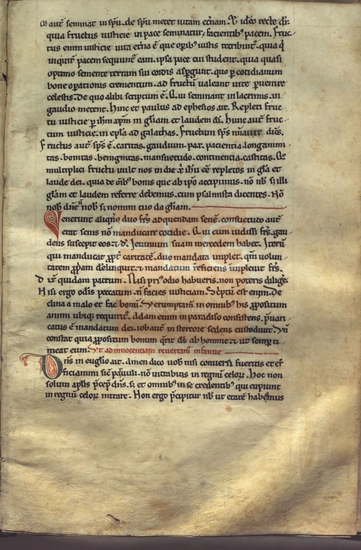 aut seminat in spu. de spu metet uitam etnam. Et ideo recte dr.
quia fructus iusticie in pace seminatur, facientibus pacem. Fruc
tus enim iusticie uita etna est que ogibus iustis retribuet. quia qui
inquirit pacem sequitur eam. ipsa pace cui studet. quia quasi
optimo semente terram sui cordis aspgit. que per cotidianum
bone opationis crementum. ad fructum ualeant uite puenire
celestis. De quo alibi scriptum est. Qui seminant in lacrimis. in
gaudio metent. Hinc et paulus ad ephesios ait. Repleti fruc
tu iusticie per ihm xpm in gliam et laudem di. Hunc aut fruc
tum iusticie. in epla ad galathas. Fructum sps nuncat dices.
Fructus aut sps est. caritas. gaudium. pax. paciencia. longanimi
tas. bonitas. benignitas. mansuetudo. continencia. castitas.
multiplici fructu uult nos in die xpi ihu esse repletos in gla et
laude dei. quia de omibus bonis que ab ipo accipimus. non nobis sed illi
gliam et laudem referre debemus. cum psalmista dicentes. Non
nobis dne non nobis sed nomini tuo da gliam.
Venerunt aliquando duo frs ad quendam senem. consuetudo aut
erat senis non manducare cotidie. Qui ut eum uidisset frs. gau
dens suscepit eos et dix. Ieiunium suam mercedem habet. Iterum
qui manducat propter caritatem. duo mandata implet. quia uolun
tatem propriam derelinquit. et mandatum reficiens impleuit frs.
Dixit quidam patrum. Nisi prius odio habueris. non poteris diligere.
Nisi ergo odis peccatum. non facies iusticiam. Scriptum est enim. De
clina a malo et fac bonum. Veruntamen in omnibus his propositum
animi ubique requiritur. Adam enim in paradiso consistens. preuari
catus est mandatum dei. iob aut in stercore sedens custodiuit. Vn
constat quia propositum bonum querit ds ab homine. et ut semper ti
meat eum. Vt ad innocentiam reuertamur infantie
Dns in euglio ait. Amen dico uobis nisi conuersi fueritis et ef
ficiamini sicut paruuli. non intrabitis in regnum celorum. Hoc non
solum aplis precepit dns. sed et omnibus in se credentibus qui cupiunt
in regnum celorum intrare. Non ergo precipitur nobis ut etatem habeamus